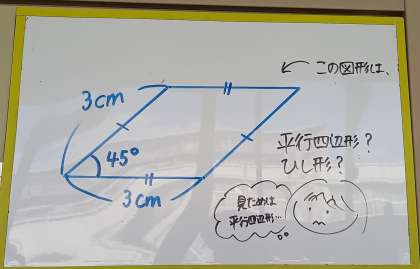 この図形は、
3cm
45°
3cm
平行四辺形?
ひし形?
見ためは
平行四辺形…